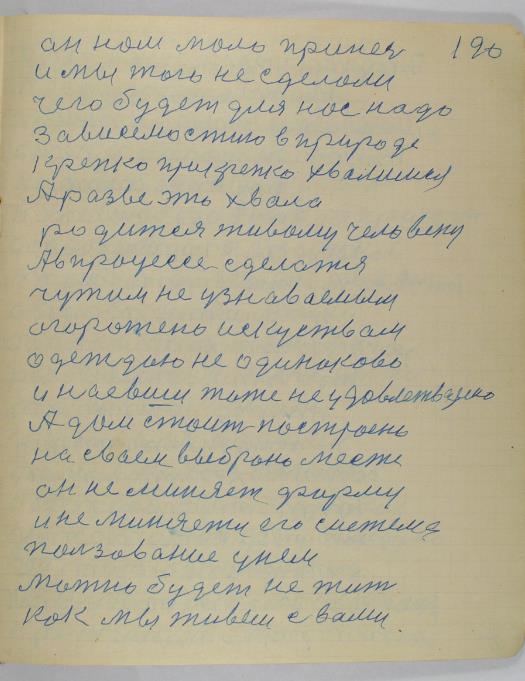 он ном моло принея 190
и мы того не сделоли
чего будет для нос надо
зависемостию в природе
крепко прикрепко хвалимся
А разве это хвала
родится живому человеку
А в процессе сделатя
чужим не узнаваемым
огорожено искуствам
одеждою не одиноково
и наевши тоже не удовлетварено
А дом стоит построено
на своем выброно месте
он не миняет форму
и не миняети его система
ползование унем
можно будет не жит
кок мы живем с вами